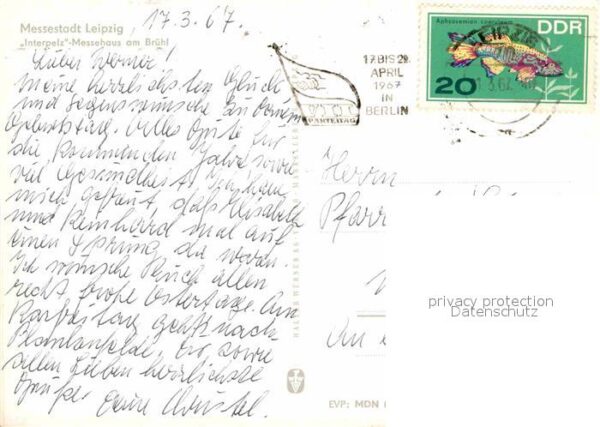 Messestadt Leipzig, 17.3.67.
„Interpelz"-Messehaus am Brühl
Lieber Werner!
Meine herzlichsten Glück
und Segenswünsche zu Deinem
Geburtstag. Alles Gute für
die kommenden Jahre, sowie
viel Gesundheit. Ich habe
mich gefreut, daß Elisabeth
und Reinhard mal auf
einen Sprung da waren.
Ich wünsche Euch allen
recht frohe Ostertage. Am
Karfreitag geht's nach
Blankenfelde. Dir sowie
allen Lieben herzlichste
Grüße Eure Christel.
17.BIS 2
APRIL
1967
IN
BERLIN
PARTEITAG
LEIPZIG
Aphyosemion coeruleum
DDR
20
Herrn
Pfarr
An
EVP: MDN
privacy protection
Datenschutz